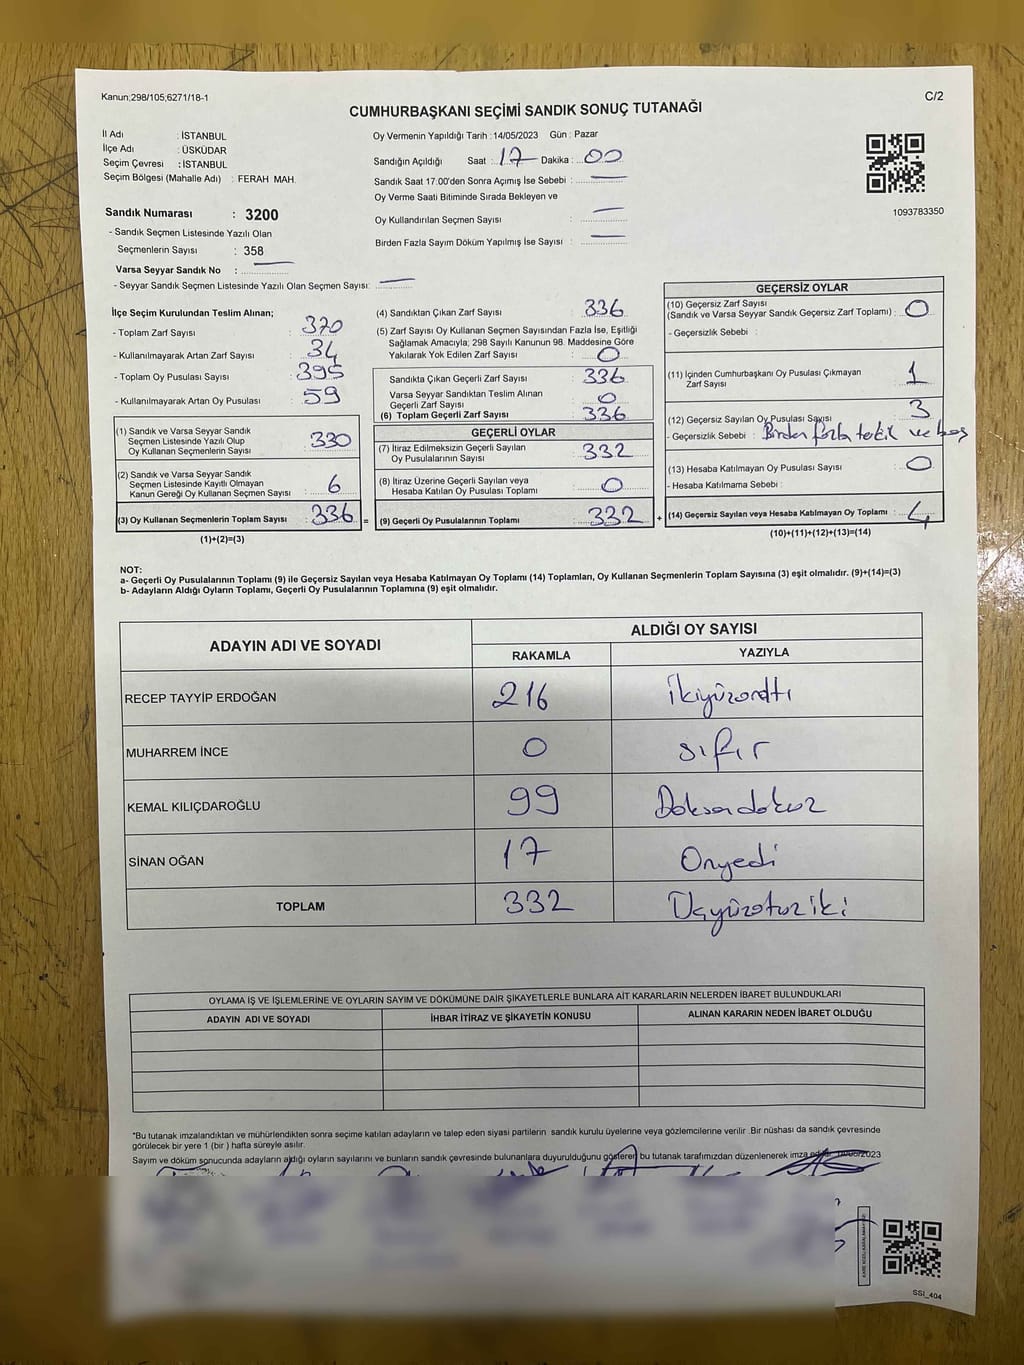 Kanun;298/105;6271/18-1
C/2
CUMHURBAŞKANI SEÇİMİ SANDIK SONUÇ TUTANAĞI
İl Adı : İSTANBUL
İlçe Adı : ÜSKÜDAR
Seçim Çevresi : İSTANBUL
Seçim Bölgesi (Mahalle Adı) : FERAH MAH.
Sandık Numarası : 3200
- Sandık Seçmen Listesinde Yazılı Olan
Seçmenlerin Sayısı : 358
Varsa Seyyar Sandık No :
- Seyyar Sandık Seçmen Listesinde Yazılı Olan Seçmen Sayısı:
Oy Vermenin Yapıldığı Tarih :14/05/2023 Gün : Pazar
Sandığın Açıldığı Saat : 17 Dakika : 00
Sandık Saat 17.00'den Sonra Açımış İse Sebebi :
Oy Verme Saati Bitiminde Sırada Bekleyen ve
Oy Kullandırılan Seçmen Sayısı :
Birden Fazla Sayım Döküm Yapılmış İse Sayısı :
1093783350
İlçe Seçim Kurulundan Teslim Alınan;
- Toplam Zarf Sayısı : 370
- Kullanılmayarak Artan Zarf Sayısı : 34
- Toplam Oy Pusulası Sayısı : 395
- Kullanılmayarak Artan Oy Pusulası : 59
(1) Sandık ve Varsa Seyyar Sandık
Seçmen Listesinde Yazılı Olup
Oy Kullanan Seçmenlerin Sayısı : 330
(2) Sandık ve Varsa Seyyar Sandık
Seçmen Listesinde Kayıtlı Olmayan
Kanun Gereği Oy Kullanan Seçmen Sayısı : 6
(3) Oy Kullanan Seçmenlerin Toplam Sayısı : 336 =
(1)+(2)=(3)
(4) Sandıktan Çıkan Zarf Sayısı : 336
(5) Zarf Sayısı Oy Kullanan Seçmen Sayısından Fazla İse, Eşitliği
Sağlamak Amacıyla; 298 Sayılı Kanunun 98. Maddesine Göre
Yakılarak Yok Edilen Zarf Sayısı : 0
Sandıkta Çıkan Geçerli Zarf Sayısı : 336
Varsa Seyyar Sandıktan Teslim Alınan
Geçerli Zarf Sayısı : 0
(6) Toplam Geçerli Zarf Sayısı : 336
GEÇERLİ OYLAR
(7) İtiraz Edilmeksizin Geçerli Sayılan
Oy Pusulalarının Sayısı : 332
(8) İtiraz Üzerine Geçerli Sayılan veya
Hesaba Katılan Oy Pusulası Toplamı : 0
(9) Geçerli Oy Pusulalarının Toplamı : 332 +
GEÇERSİZ OYLAR
(10) Geçersiz Zarf Sayısı
(Sandık ve Varsa Seyyar Sandık Geçersiz Zarf Toplamı) : 0
- Geçersizlik Sebebi :
(11) İçinden Cumhurbaşkanı Oy Pusulası Çıkmayan
Zarf Sayısı : 1
(12) Geçersiz Sayılan Oy Pusulası Sayısı : 3
- Geçersizlik Sebebi : Birden fazla tercih ve boş
(13) Hesaba Katılmayan Oy Pusulası Sayısı : 0
- Hesaba Katılmama Sebebi :
(14) Geçersiz Sayılan veya Hesaba Katılmayan Oy Toplamı : 4
(10)+(11)+(12)+(13)=(14)
NOT:
a- Geçerli Oy Pusulalarının Toplamı (9) ile Geçersiz Sayılan veya Hesaba Katılmayan Oy Toplamı (14) Toplamları, Oy Kullanan Seçmenlerin Toplam Sayısına (3) eşit olmalıdır. (9)+(14)=(3)
b- Adayların Aldığı Oyların Toplamı, Geçerli Oy Pusulalarının Toplamına (9) eşit olmalıdır.
ADAYIN ADI VE SOYADI
ALDIĞI OY SAYISI
RAKAMLA YAZIYLA
RECEP TAYYİP ERDOĞAN 216 ikiyüzonaltı
MUHARREM İNCE 0 sıfır
KEMAL KILIÇDAROĞLU 99 Doksandokuz
SİNAN OĞAN 17 Onyedi
TOPLAM 332 Üçyüzotuziki
OYLAMA İŞ VE İŞLEMLERİNE VE OYLARIN SAYIM VE DÖKÜMÜNE DAİR ŞİKAYETLERLE BUNLARA AİT KARARLARIN NELERDEN İBARET BULUNDUKLARI
ADAYIN ADI VE SOYADI İHBAR İTİRAZ VE ŞİKAYETİN KONUSU ALINAN KARARIN NEDEN İBARET OLDUĞU
*Bu tutanak imzalandıktan ve mühürlendikten sonra seçime katılan adayların ve talep eden siyasi partilerin sandık kurulu üyelerine veya gözlemcilerine verilir .Bir nüshası da sandık çevresinde
görülecek bir yere 1 (bir ) hafta süreyle asılır.
Sayım ve döküm sonucunda adayların aldığı oyların sayılarını ve bunların sandık çevresinde bulunanlara duyurulduğunu gösteren bu tutanak tarafımızdan düzenlenerek imza
SSI_404